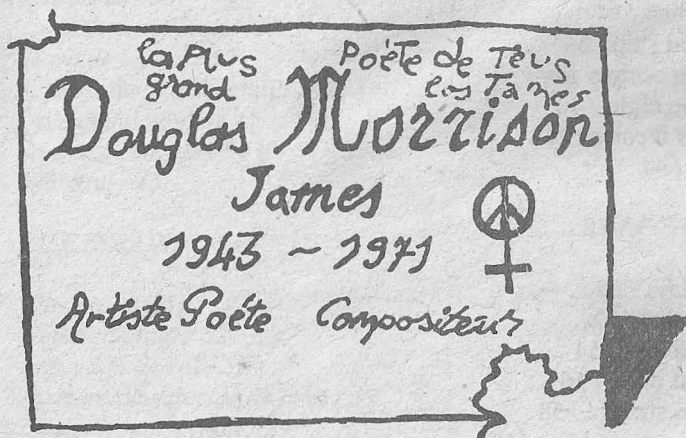 la Plus Poéte de Teus
grand les Tames
Douglas Morrison
James
1943 ~ 1971
Artiste Poéte Compositeur